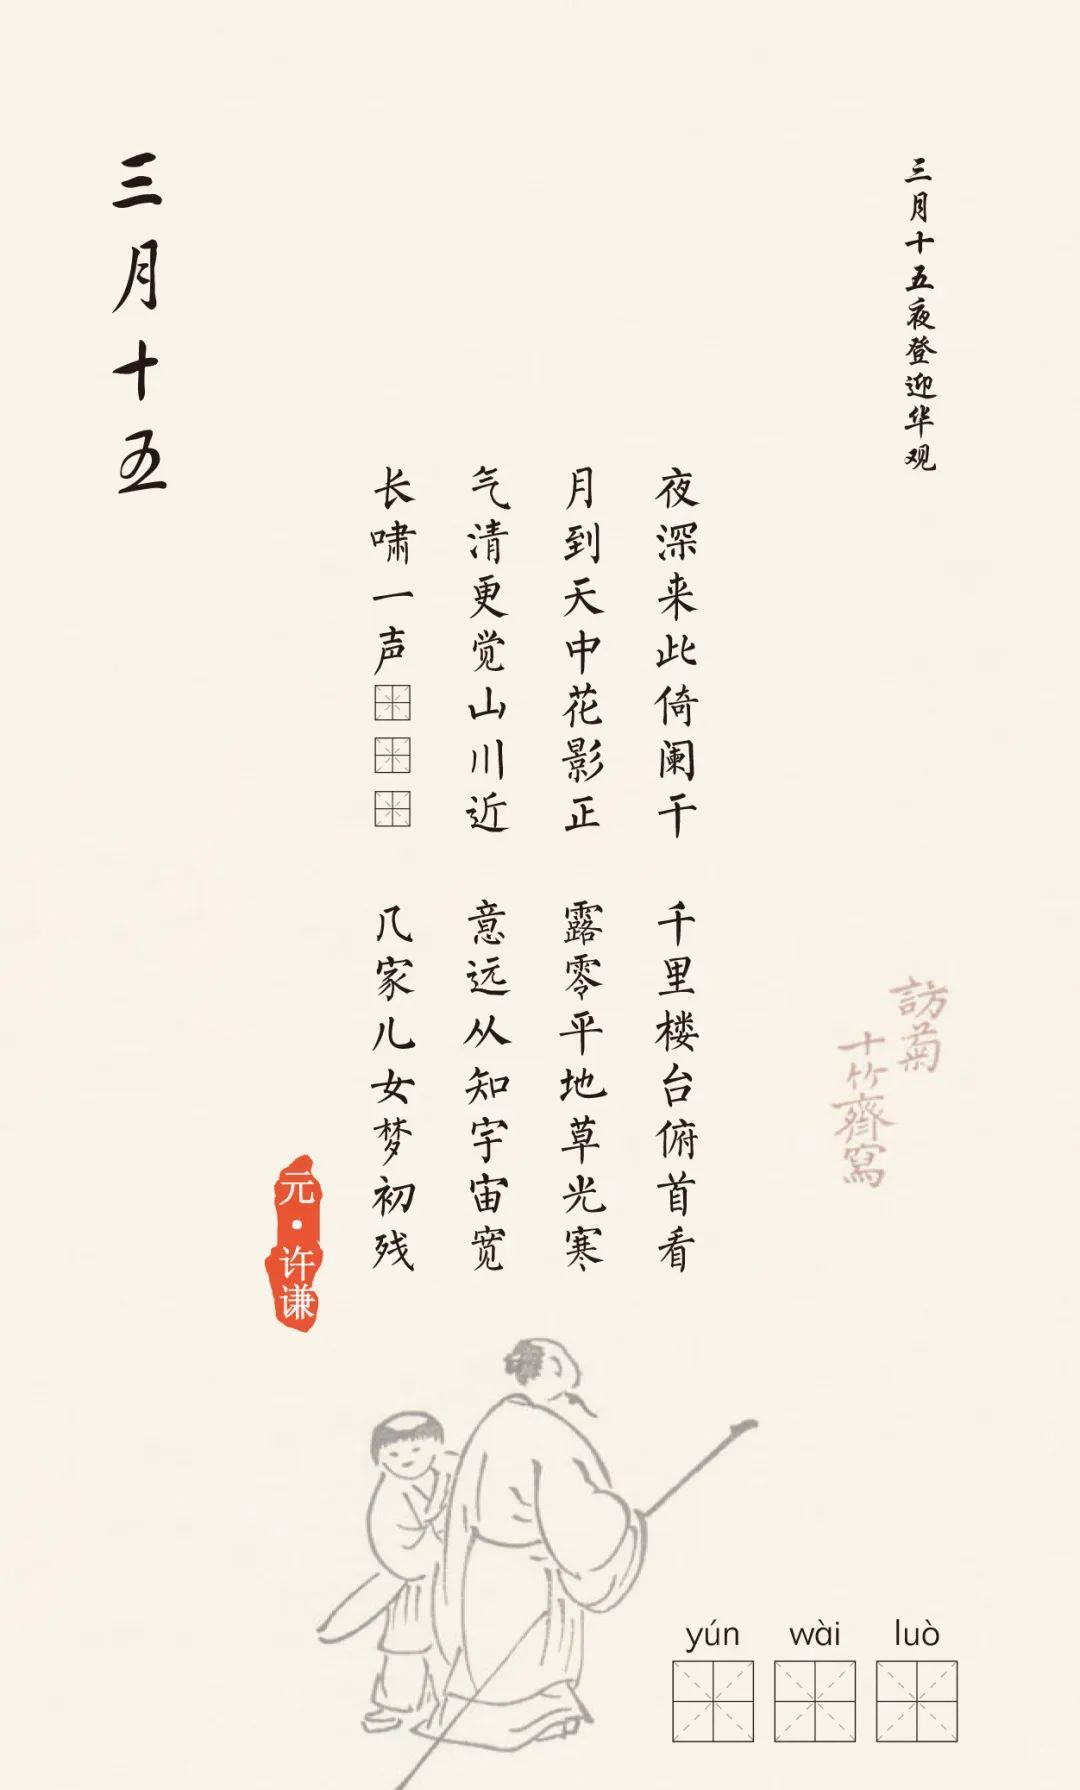 三月十五夜登迎华观
夜深来此倚阑干 千里楼台俯首看
月到天中花影正 露零平地草光寒
气清更觉山川近 意远从知宇宙宽
长啸一声 几家儿女梦初残
元·许谦
三月十五
訪菊
十竹齋寫
yún wài luò